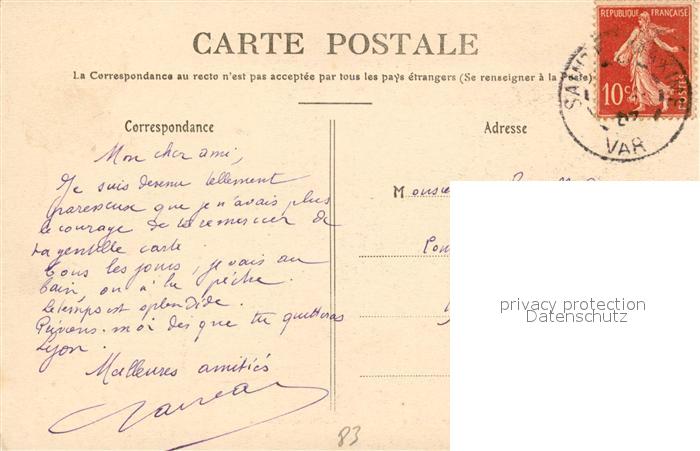 CARTE POSTALE
La Correspondance au recto n'est pas acceptée par tous les pays étrangers (Se renseigner à la Poste)
REPUBLIQUE FRANÇAISE
10 c
POSTES
VAR
07
Correspondance
Adresse
Mon cher ami,
Je suis devenu tellement
paresseux que je n'avais plus
le courage de te remercier de
ta gentille carte.
Tous les jours, je vais au
bain ou à la pêche.
Le temps est splendide.
Préviens-moi dès que tu quitteras
Lyon.
Meilleures amitiés
Monsieur
privacy protection
Datenschutz
83